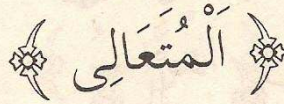 اَلْمُتَعَالِى